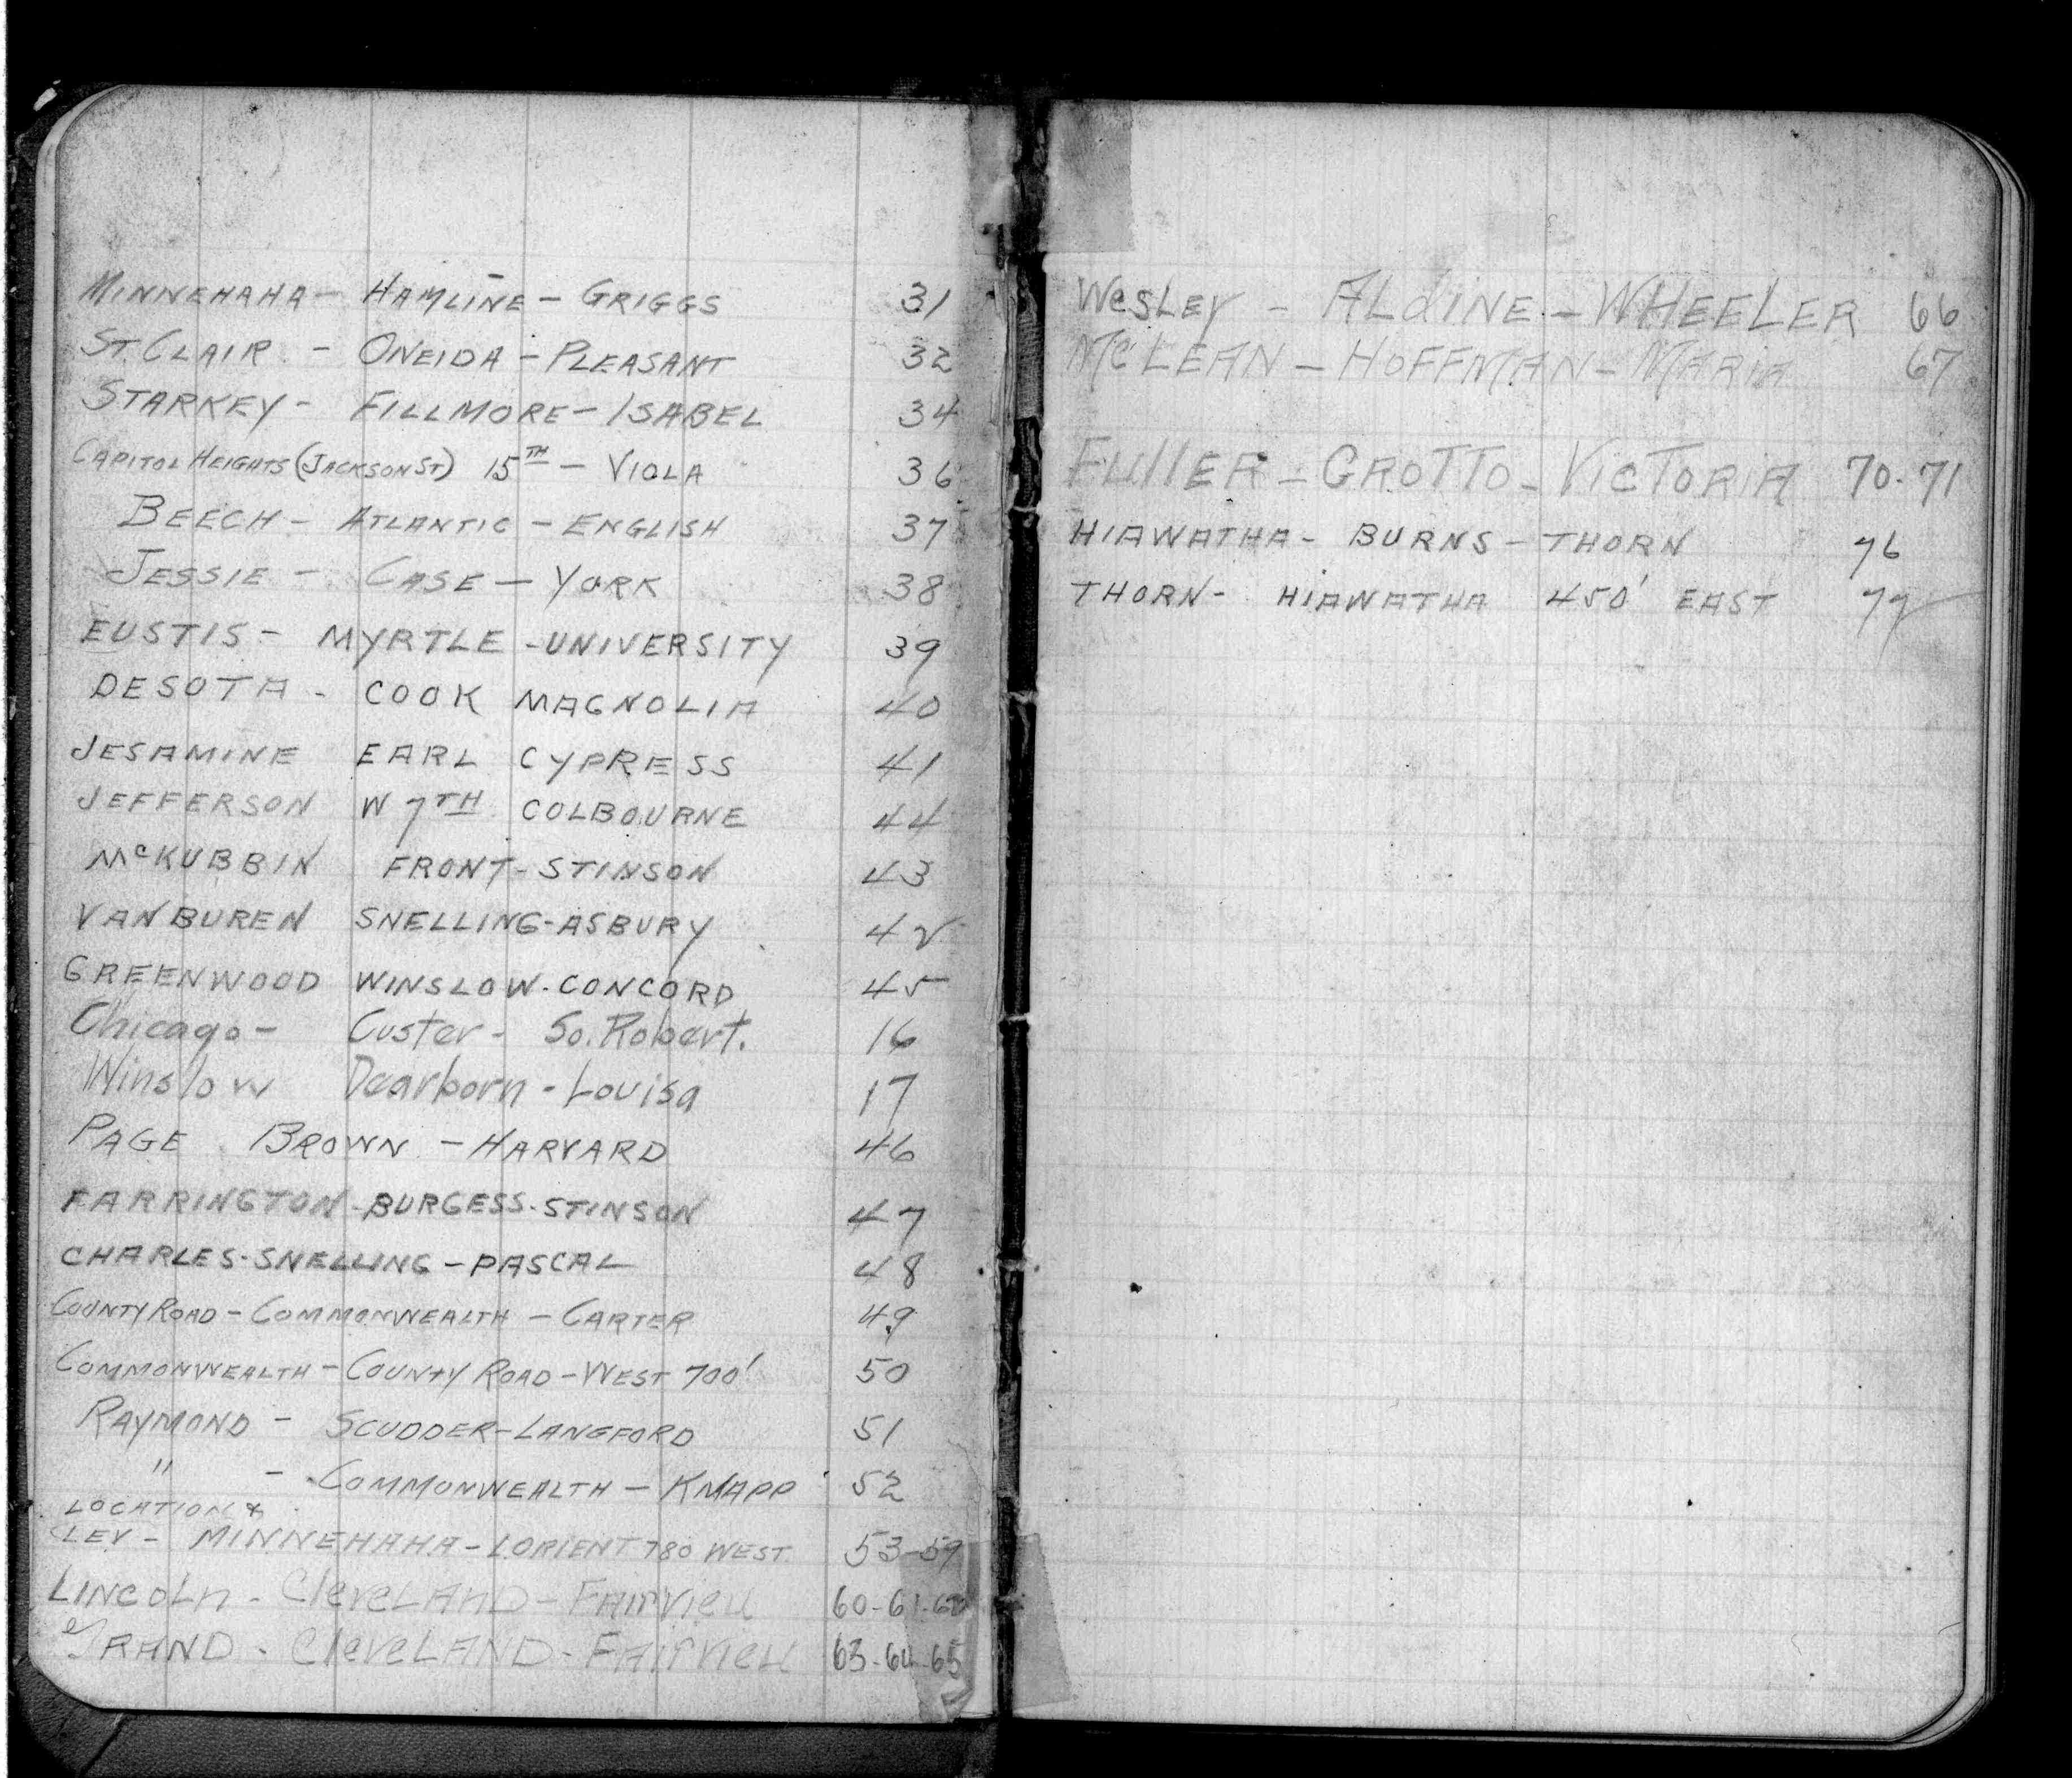 MINNEHAHA - HAMLINE - GRIGGS 31
ST. CLAIR - ONEIDA - PLEASANT 32
STARKEY - FILLMORE - ISABEL 34
CAPITOL HEIGHTS (JACKSON ST) 15TH - VIOLA 36
BEECH - ATLANTIC - ENGLISH 37
JESSIE - CASE - YORK 38
EUSTIS - MYRTLE - UNIVERSITY 39
DESOTA - COOK MAGNOLIA 40
JESAMINE EARL CYPRESS 41
JEFFERSON W 7TH COLBOURNE 44
McKUBBIN FRONT - STINSON 43
VAN BUREN SNELLING - ASBURY 42
GREENWOOD WINSLOW - CONCORD 45
Chicago - Custer - So. Robert. 16
Winslow Dearborn - Louisa 17
PAGE BROWN - HARVARD 46
FARRINGTON - BURGESS - STINSON 47
CHARLES - SNELLING - PASCAL 48
COUNTY ROAD - COMMONWEALTH - CARTER 49
COMMONWEALTH - COUNTY ROAD - WEST 700' 50
RAYMOND - SCUDDER - LANGFORD 51
" - COMMONWEALTH - KNAPP 52
LOCATION &
CLEV - MINNEHAHA - LORIENT 780 WEST 53-59
LINCOLN - CLEVELAND - FAIRVIEW 60-61-62
GRAND - CLEVELAND - FAIRVIEW 63-64-65
WESLEY - ALDINE - WHEELER 66
McLEAN - HOFFMAN - MARIA 67
FULLER - GROTTO - VICTORIA 70-71
HIAWATHA - BURNS - THORN 76
THORN - HIAWATHA 450' EAST 77